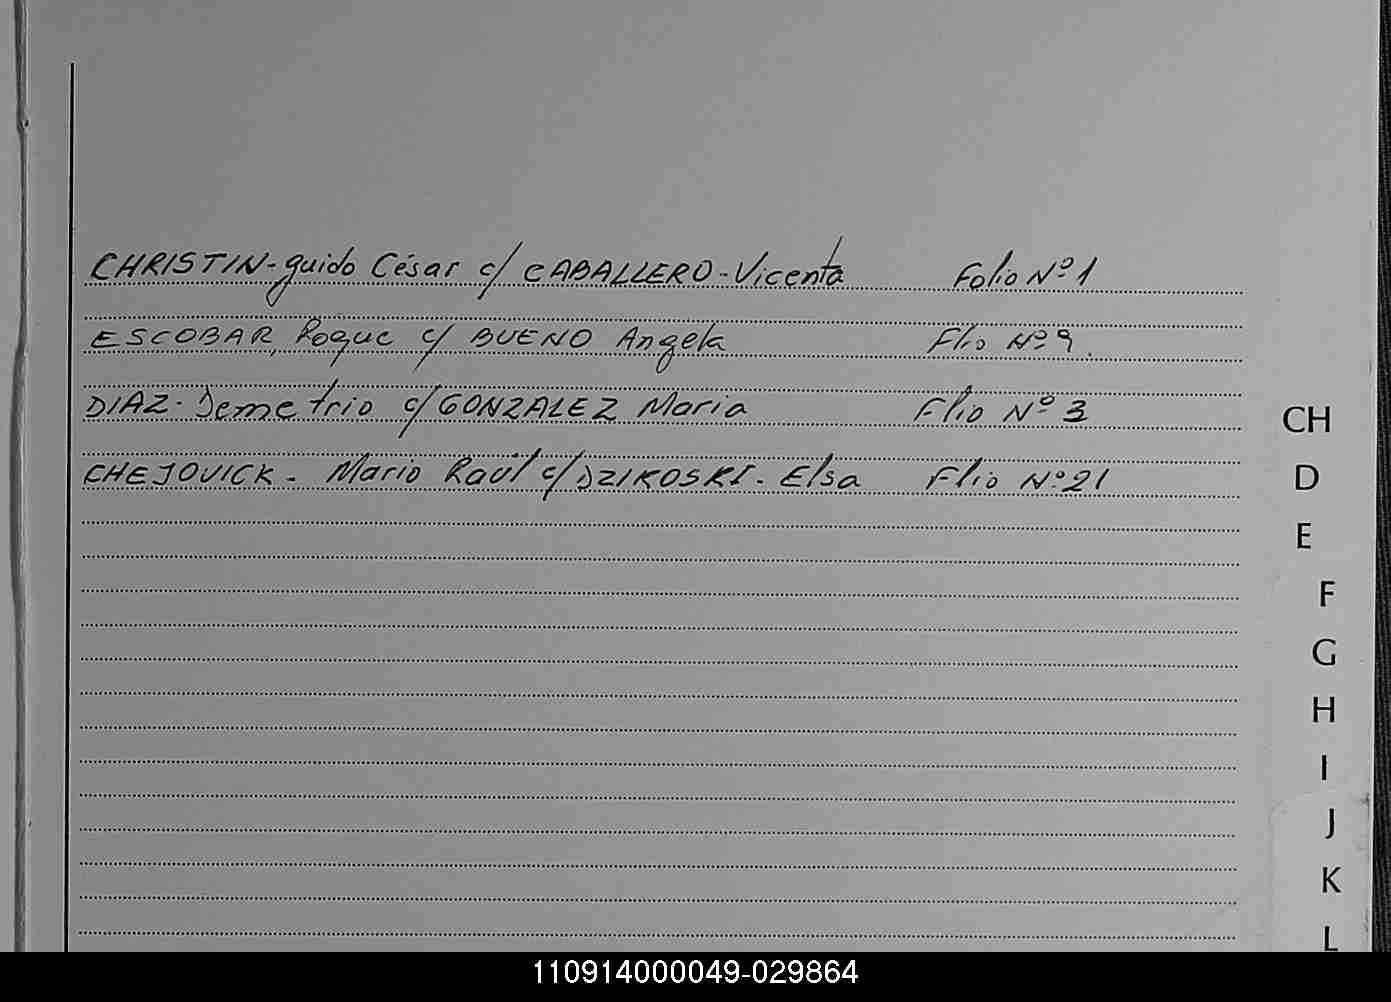 CHRISTIN-guido César c/ CABALLERO-Vicenta Folio Nº 1
ESCOBAR, Roque c/ BUENO Angela Flio Nº 9.
DIAZ- Demetrio c/ GONZALEZ Maria Flio Nº 3
CHEJOVICK- Mario Raúl c/ DZIKOSKI- Elsa Flio Nº 21
CH
D
E
F
G
H
I
J
K
L
110914000049-029864